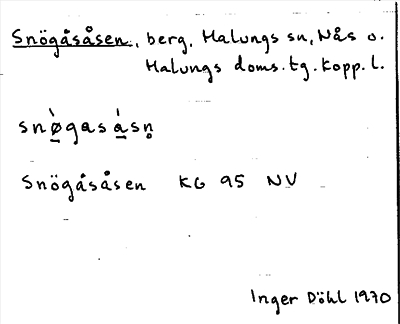 Snögåsåsen, berg, Malungs sn, Nås o.
Malungs doms.tg. Kopp. l.
snø̠̀gasà̠sn̥
Snögåsåsen KG 95 NV
Inger Döhl 1970